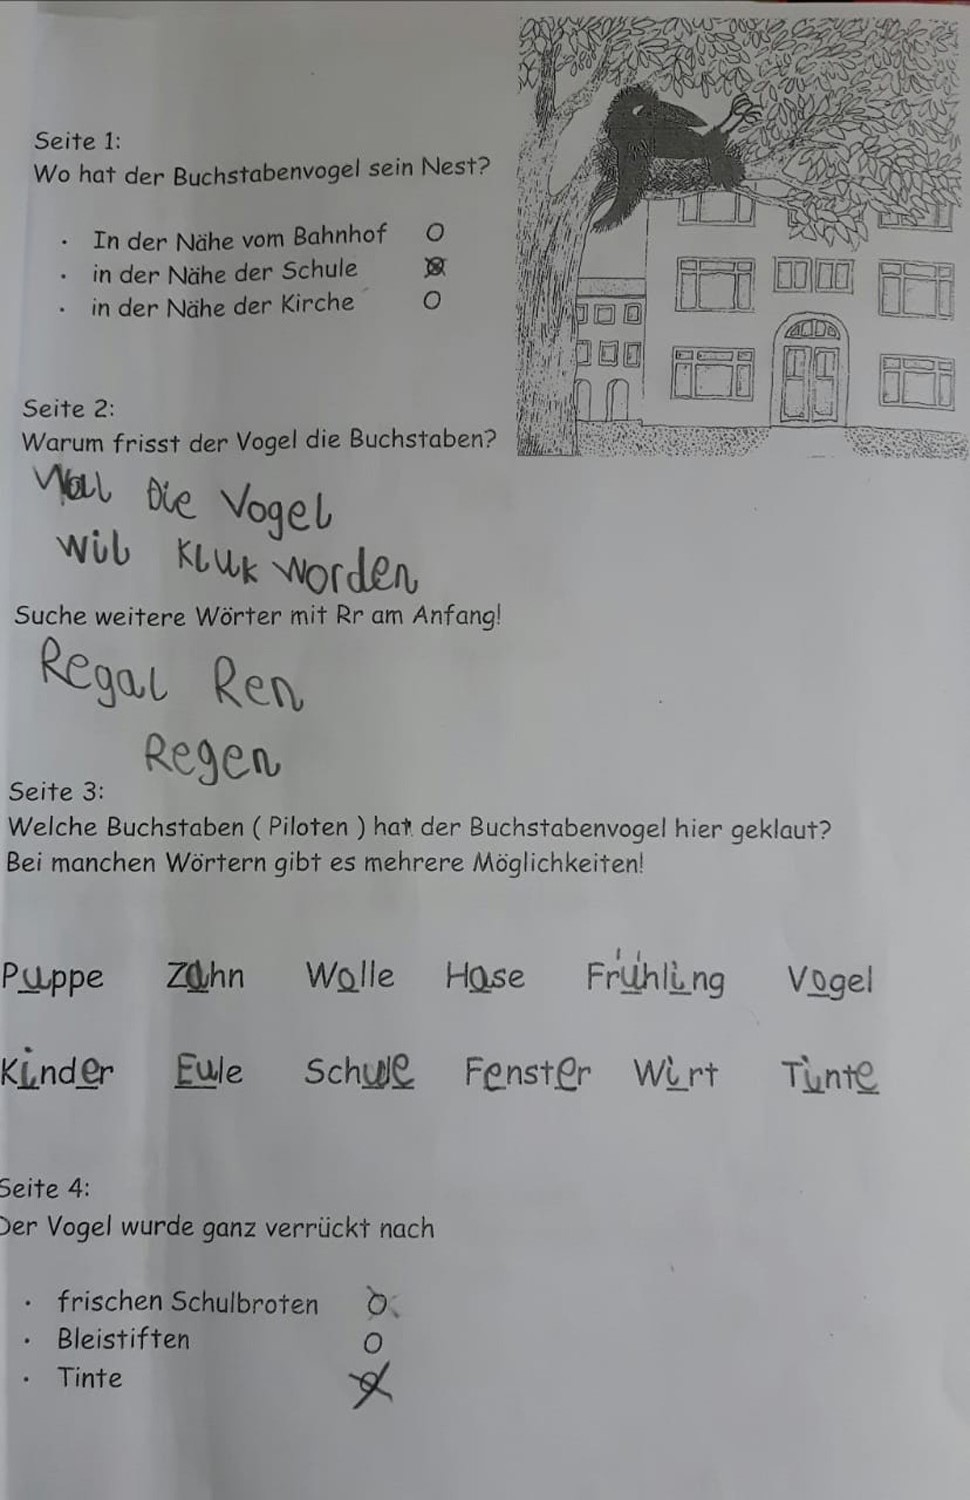 Seite 1:
Wo hat der Buchstabenvogel sein Nest?
· In der Nähe vom Bahnhof O
· in der Nähe der Schule ⊗
· in der Nähe der Kirche O
Seite 2:
Warum frisst der Vogel die Buchstaben?
Die Vogel
wil kluk worden
Suche weitere Wörter mit Rr am Anfang!
Regal Ren
Regen
Seite 3:
Welche Buchstaben ( Piloten ) hat der Buchstabenvogel hier geklaut?
Bei manchen Wörtern gibt es mehrere Möglichkeiten!
Puppe Zahn Wolle Hase Frühling Vogel
Kinder Eule Schule Fenster Wirt Tinte
Seite 4:
Der Vogel wurde ganz verrückt nach
· frischen Schulbroten O
· Bleistiften O
· Tinte ⊗